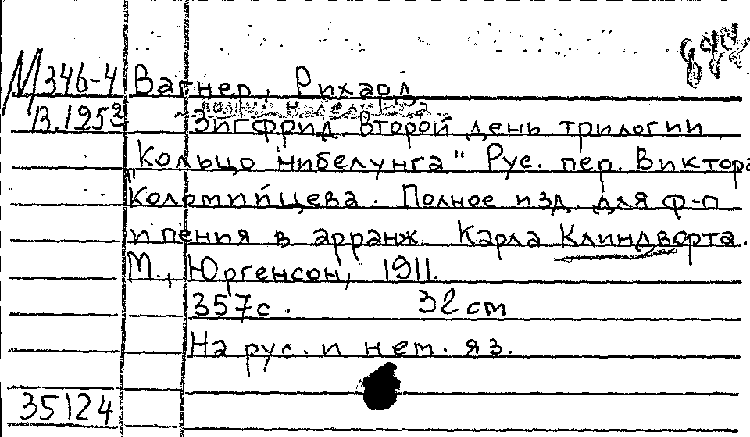 844
М346-4 Вагнер, Рихард
В.1952
Зигфрид. Второй день трилогии
"Кольцо нибелунга" Рус. пер. Виктора
Коломийцева. Полное изд. для ф-п
и пения в арранж. Карла Клиндворта.
М., Юргенсон, 1911.
357с. 32 cm
На рус. и нем. яз.
35124